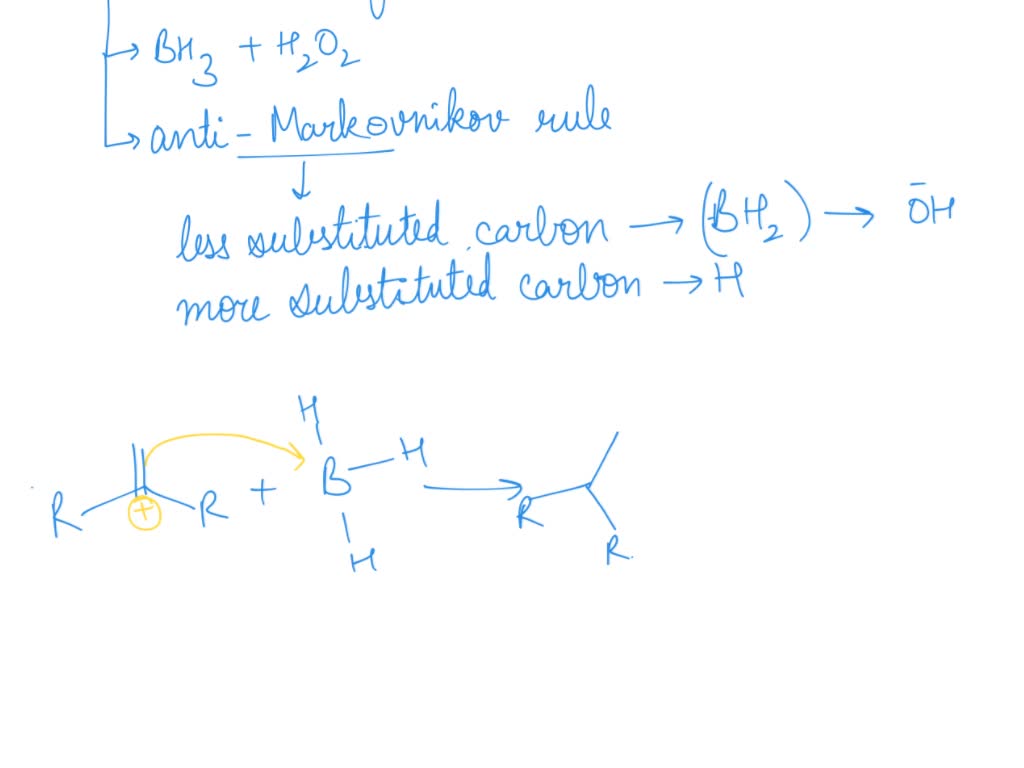 → BH3 + H2O2
→ anti-Markovnikov rule
↓
less substituted carbon → (BH2) → ŌH
more substituted carbon → H
H
R + R + B H → R
H R